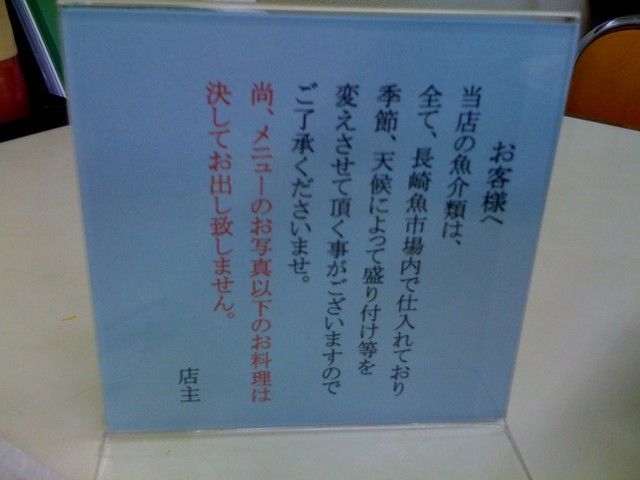 お客様へ
当店の魚介類は、
全て、長崎魚市場内で仕入れており
季節、天候によって盛り付け等を
変えさせて頂く事がございますので
ご了承くださいませ。
尚、メニューのお写真以下のお料理は
決してお出し致しません。
店主